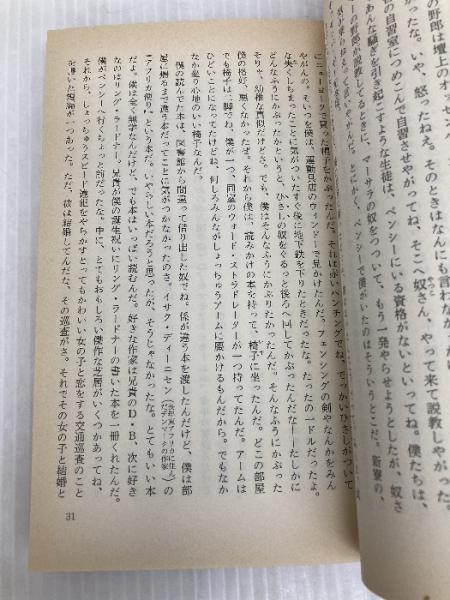 の野郎は壇上のオッセン
ったな。いや、怒ったねえ。そのときはなんにも言わなかった
の自習室につめこんで自習させやがってね、そこへ奴さん、やって来て説教しやがった。
あんな騒ぎを引き起こすような生徒は、ペンシーにいる資格がないといってね。僕たちは、
の野郎が説教してるときに、マーサラの奴をつついて、もう一発やらせようとしたが、奴さ
とにかく、ペンシーで僕がいたのはそういうとこだ。新寮の、
にニューヨークで買った帽子をかぶったんだ。それは赤いハンチングでね、でっかいひさしがついて
やがんの。そいつを僕は、運動具店のウィンドーで見かけたんだ。フェンシングの剣やなんかをみん
な失くしちまったことに気がついたすぐ後に地下鉄を下りたときだったな。たったの一ドルだったよ。
どんなふうにかぶったかというと、ひさしの奴をぐるっと後ろへ回してかぶったんだな――たしかに
そりゃ、幼稚な真似だけどさ、でも、僕はそんなふうにかぶりたかったんだ。そんなふうにかぶった
僕の格好、悪くなかったぜ。それから僕は、読みかけの本を持って、椅子に坐ったんだ。どこの部屋
でも椅子は二脚でね。僕が一つ、同室のウォード・ストラドレーターが一つ持ってたんだ。アームは
ひどいことになってたけどね、何しろみんながしょっちゅうアームに腰かけるもんだから。でもなか
なか坐り心地のいい椅子なんだ。
僕の読んでた本は、図書館から間違って借り出した奴でね。係が違う本を渡したんだけど、僕は部
屋に帰るまで違う本だってことに気がつかなかったのさ。イサク・ディーネセン（
『アフリカ便り』という本だ。いやらしい本だろうと思ったが、そうじゃなかったな。とてもいい本
だよ。僕は全く無学なんだけど、でも本はいっぱい読むんだ。好きな作家は兄貴のD・B、次に好き
なのはリング・ラードナー。兄貴が僕の誕生祝いにリング・ラードナーの書いた本を一冊くれたんだ。
僕がペンシーへ行くちょっと前だったな。中に、とてもおもしろい傑作な芝居がいくつかあってね、
それから、しょっちゅうスピード違反をやらかすとってもかわいい女の子と恋をする交通巡査のこと
を書いた短篇が一つあった。ただ、彼は結婚してんだな、その巡査がさ。それでその女の子と結婚と
31